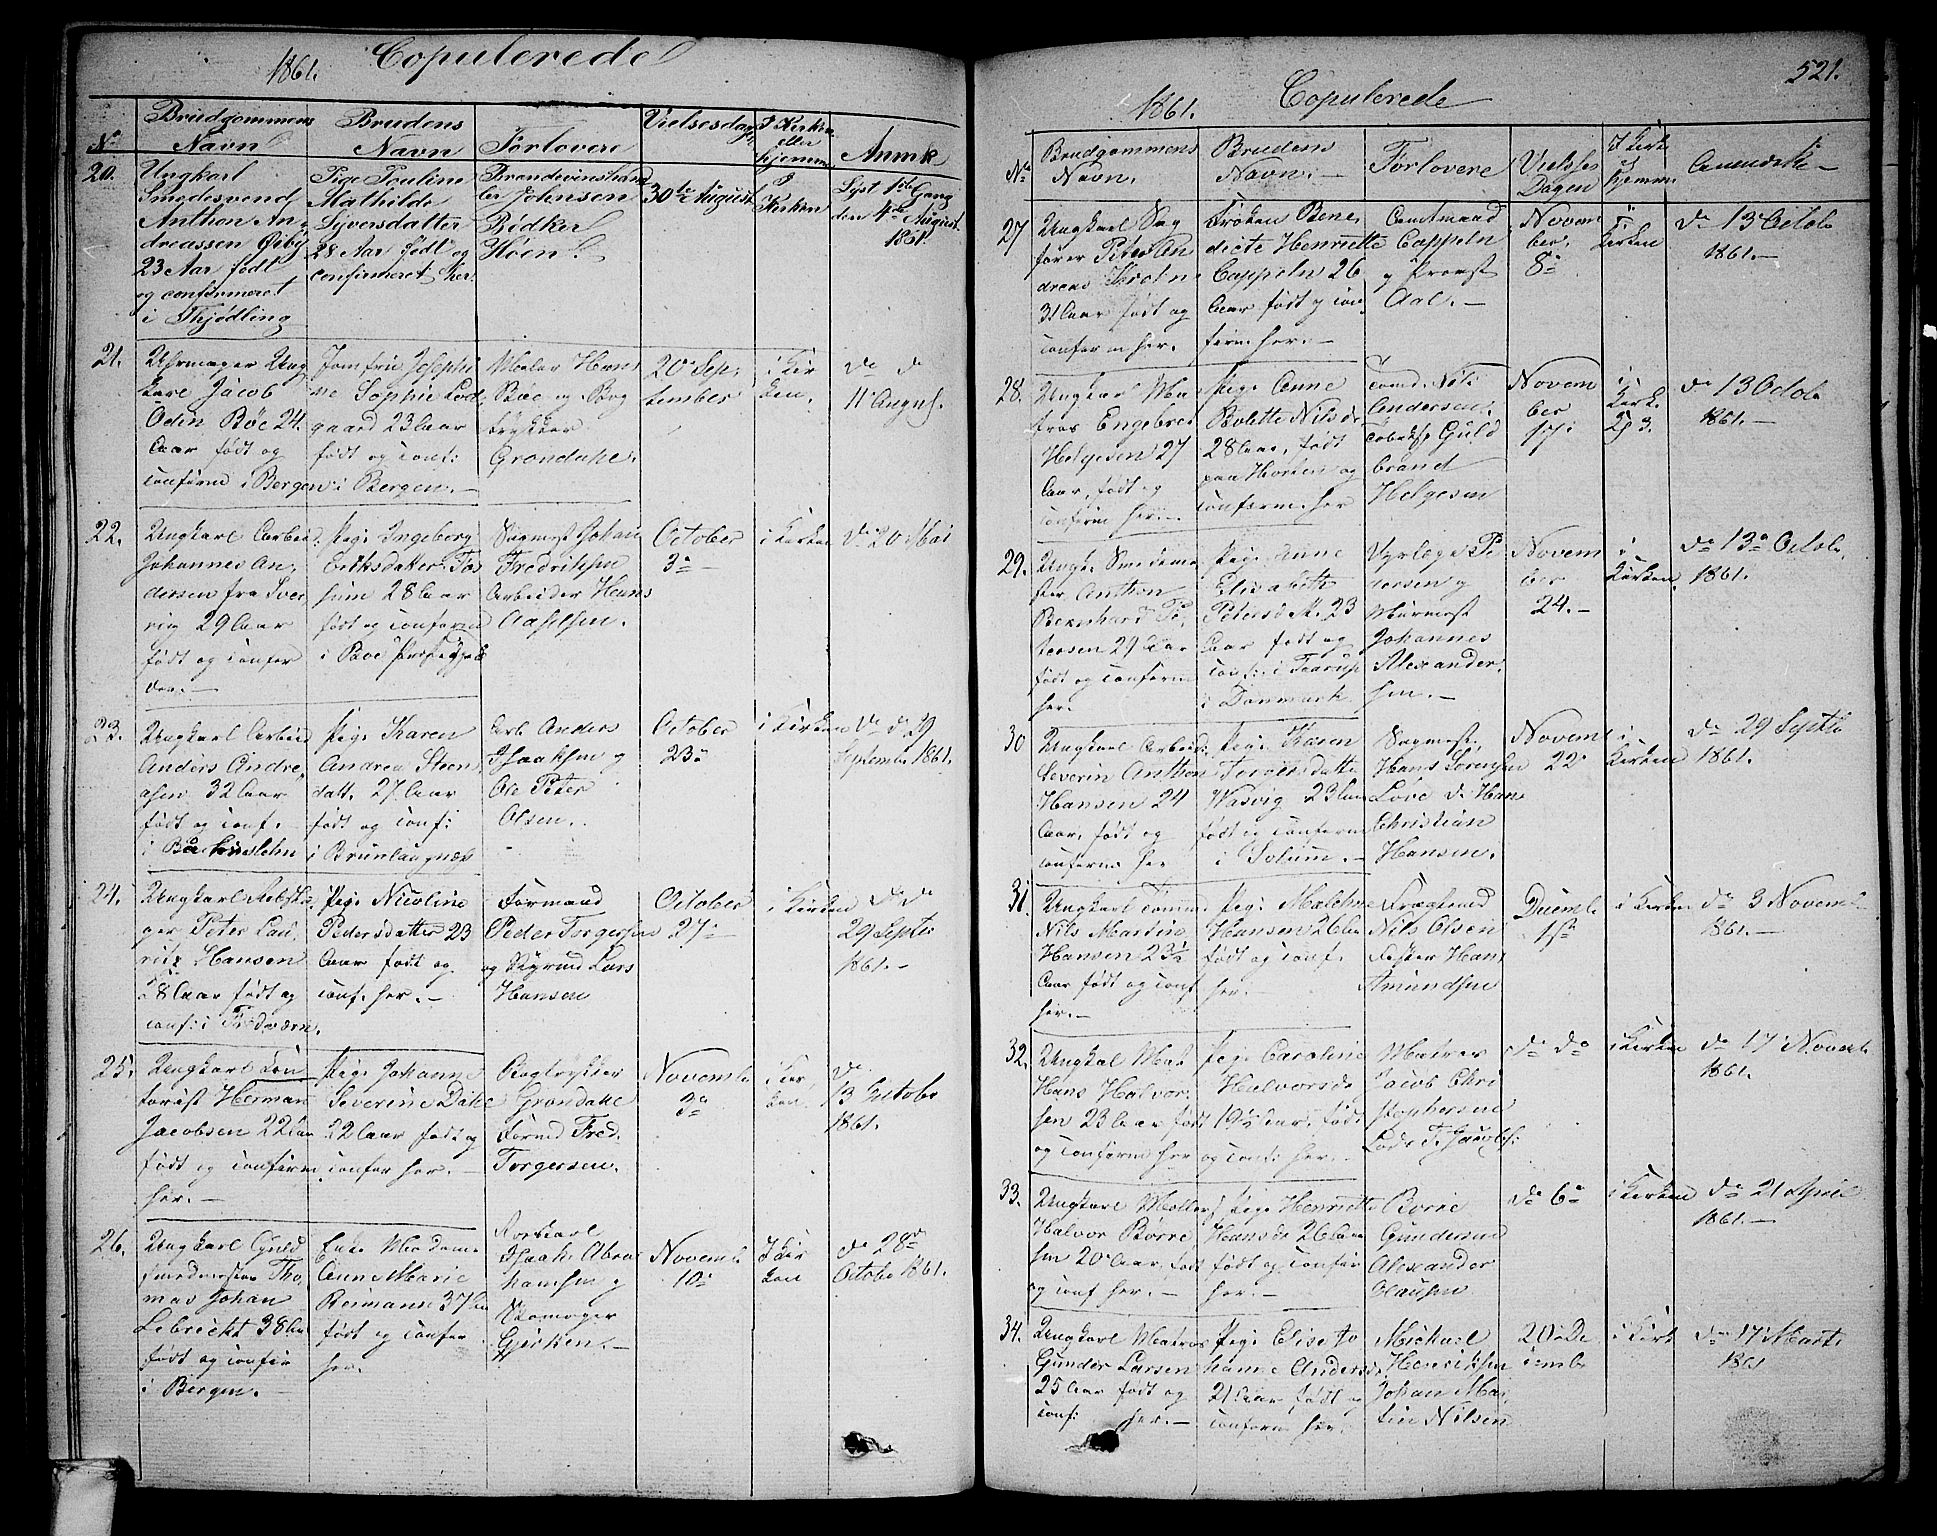 1861. Copulerede
No
Brudgommens
Navn
Brudens
Navn
Forlovere
Vielsesdag
I Kirken
eller
hjemme
Anmk
20.
Ungkarl
Smedesvend
Anthon An
dreassen Øiby
23 Aar født
og confirmeret
i Thjødling
Pige Pauline
Mathilde
Syversdatter
28 Aar født og
confirmeret her.
Brændevinshand
ler Johnsen
Bødker
Høen
30te August
I
Kirken
Lyst 1ste Gang
den 4de August
1861.
21.
Uhrmager Ung
karl Jacob
Odin Bøe 24.
Aar født og
confirm i Bergen
Jomfru Josephi
ne Sophie Lod,
gaard 23 Aar
født og conf:
i Bergen.
Maler Hans
Bøe og Bog
trykker
Grøndahl.
20 Sep,
tember
i Kir
ken,
do do
11 August.
22.
Ungkarl Arbeid.
Johannes An,
dersen fra Sve,
rig 29 Aar
født og confir
der.
Pige Ingeborg
Eriksdatter Fos
sum 28 Aar
født og confirm
i Boe
Sagmest Johan
Fredriksen
Arbeider Hans
Axelsen.
October
3
i Kirken
do 20 Mai
23.
Ungkarl Arbeid
Anders Andre,
asen 32 Aar
født og conf.
i
Pige Karen
Andrea Steen,
datt. 27 Aar
født og conf:
i Brunlaugnæs
Arb Anders
Isaaksen og
Ole Peter
Olsen.
October
23
i Kirken
do d. 29
Septembr 1861.
24.
Ungkarl
Peter Lau,
ritz Hansen
28 Aar født og
conf: i Fredværn.
Pige Nicoline
Pedersdatter 23
Aar født og
conf. her.
Formand
Peder Torgersen
og Lars
Hansen
October
27
i Kirken
do do
29 Septbr
1861.
25.
Ungkarl Con
torist Herman
Jacobsen 22 Aar
født og confirm
her.
Pige Johanne
Severine Dahl
22 Aar født og
confir her.
Bogtrykker
Grøndahl
Formd Fred.
Torgersen.
Novemb
3
i Kir,
ken
do
13 Octobr
1861.
26.
Ungkarl Guld
smedmester Tho,
mas Johan
Lebrecht 38 Aar
født og confir
i Bergen.
Enke Madam
Anne Marie
Reimans 37 Aar
født og confir
her.
Isaak Abra
hamsen og
Skomager
Gjerken.
Novemb
10
I Kir
ken
do 28
Octobr 1861.
521.
1861. Copulerede
No
Brudgommens
Navn.
Brudens
Navn.
Forlovere
Vielses
Dagen
I Kirk
hjemm.
Anmærk
27
Ungkarl Sag
fører Peter An
dreas
31 Aar født og
confirm her.
Frøken Bene
dicte Henriette
Cappeln 26
Aar født og con
firm her.
Amtmand
Cappeln
og Provst
Aal.
Novem
ber.
8
i
Kirken
do 13 Octob
1861.
28.
Ungkarl Ma
tros Engebret
Helgesen 27
Aar, født og
confirm her.
Pige Anne
Bolette Nilsd.
28 Aar, født
paa Horten og
confirm. her
Nils
Andersen,
Guld
brand
Helgesen
Novem
ber
17
i
Kirk.
do 13 Octob
1861.
29.
Ungk Smedeme
ster Anthon
Bernhard Pe,
tersen 29 Aar
født og confirm
her.
Pige Anne
Elisabeth
Petersdt. 23
Aar født og
conf: i
i Danmark
Pe
dersen og
Murmest
Johannes
Alexander,
sen.
Novem
ber
24.
i
Kirken
do 13 Octob.
1861.
30
Ungkarl Arbeid.
Severin Anthon
Hansen 24
Aar, født og
confirm her
Pige Karen
datter
23 Aar
født og confirm
i Solum.
Sagmest,
Hans Sørensen
Love do Hans
Christian
Hansen.
Novem
22
i
Kirken
do 29 Septb
1861.
31.
Ungkarl Tømm
Nils Martin
Hansen 23½
Aar født og conf
her.
Pige
Hansen 26 Aar
født og conf.
her.
Fragtmd
Nils Olsen
Fisker Hans
Amundsen
Decemb
1ste
i Kirken
do 3 Novemb
1861.
32.
Ungkal Mat
Hans Halvor
sen 23 Aar født
og confirm her
Pige Caroline
Halvorsd
19½ Aar, født
og conf: her.
Matros
Jacob Chri
stophersen
Lods T. Jacobs:
do do
i Kirken
do 17 Novemb
1861.
33.
Ungkarl
Halvor Børre
sen 20 Aar, født
og conf her.
Pige Henriette
Hansd 26 Aar
født og confir
her.
Børre
Gundersen
Alexander
Clausen
do 6
i Kirken
do 21 April
1861.
34.
Ungkarl Matros
Gunder Larsen
25 Aar født og
conf: her.
Pige Elise Jo
hanne Andersd.
21 Aar født og
confirm her.
Michael
Henriksen
Johan Mar
tin Nilsen
20 De
cembr
i Kirk
do 17 Marts
1861